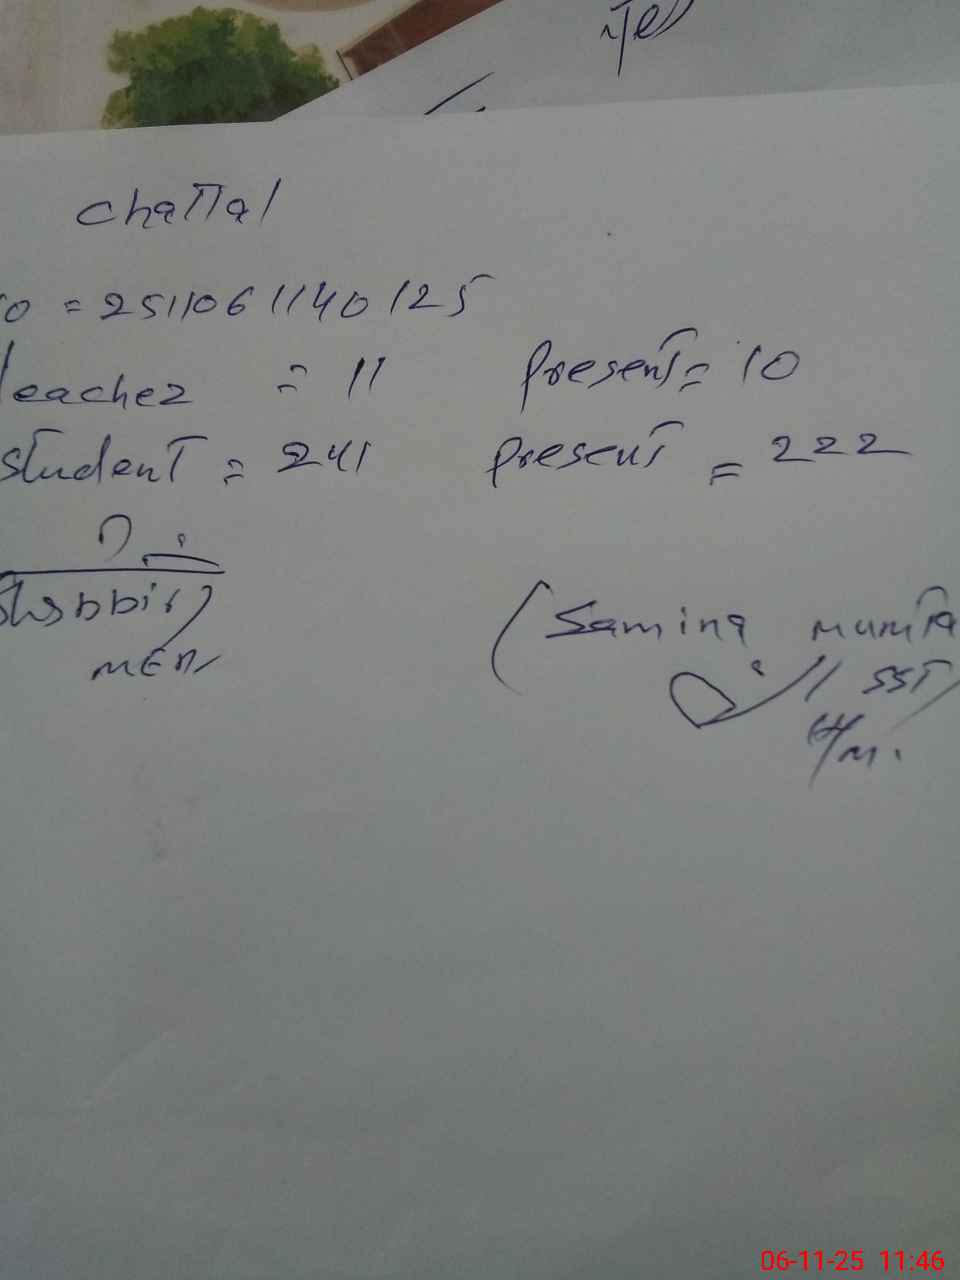 yes
Chattal
= 251106 1140 125
Teacher = 11 Present = 10
student = 241 Present = 222
(Samina Mumta
SST
H/M.
06-11-25 11:46